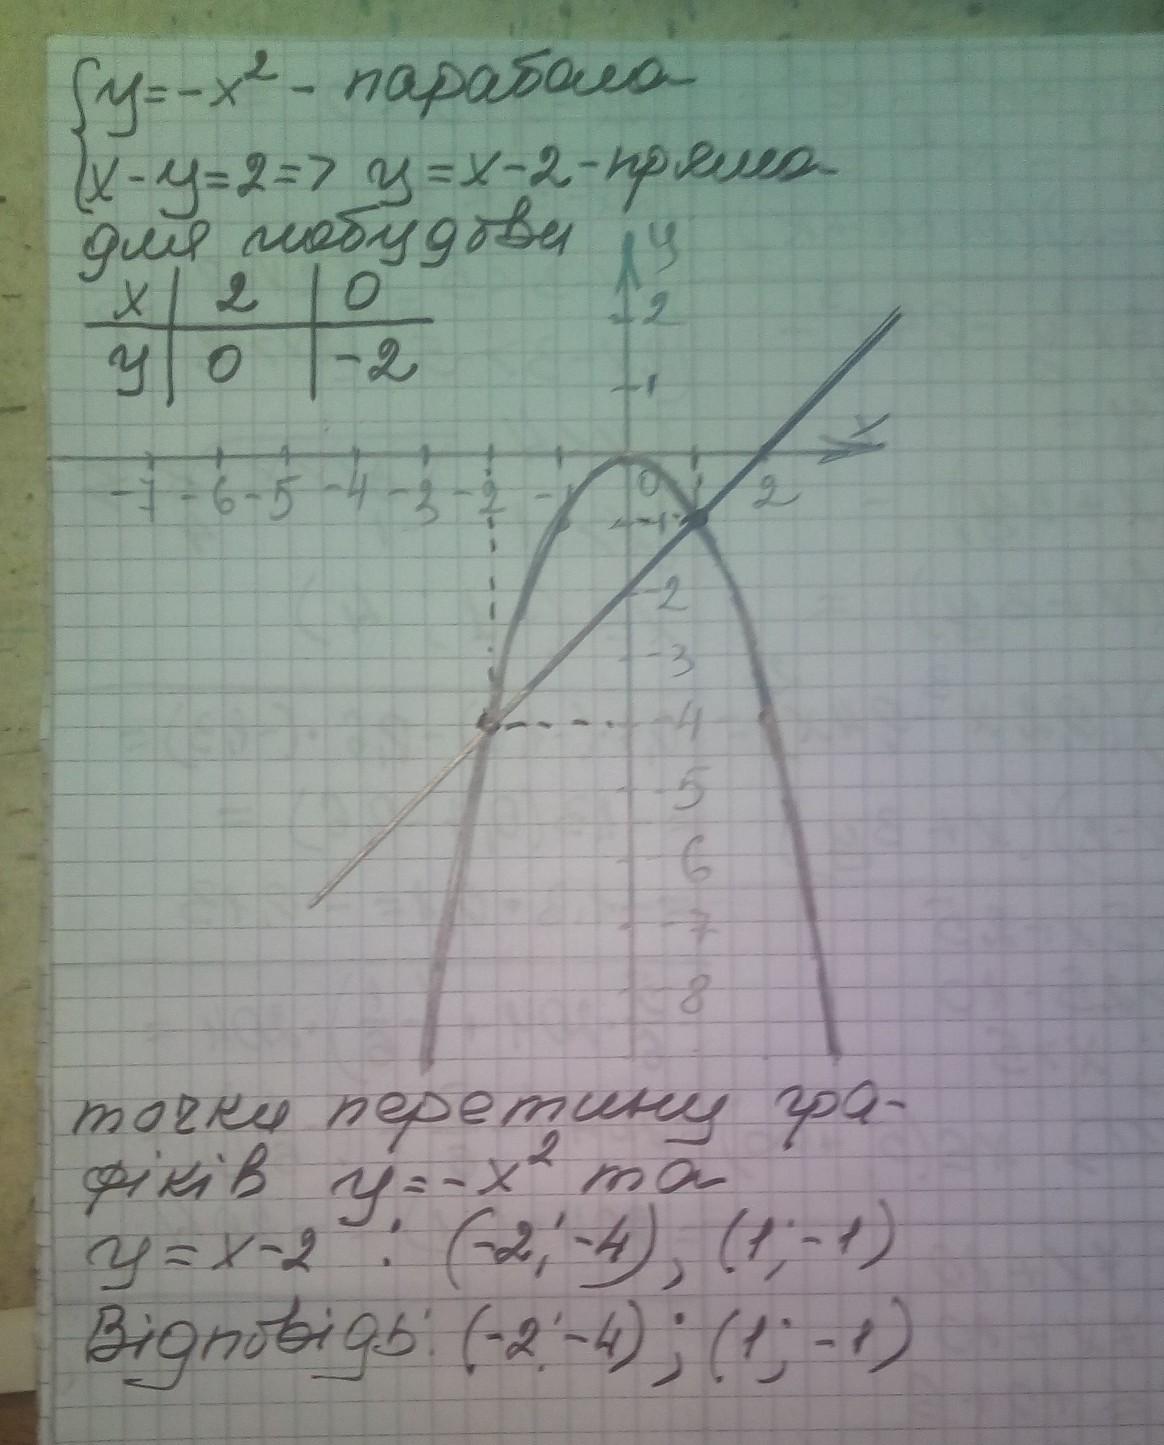 { y = -x² - парабола
x - y = 2 => y = x - 2 - пряма
для побудови
x | 2 | 0
y | 0 | -2
y
2
1
x
-7 -6 -5 -4 -3 -2 -1 0 1 2
-1
-2
-3
-4
-5
6
-7
-8
точки перетину гра-
фіків y = -x² та
y = x - 2 : (-2; -4), (1; -1)
Відповідь: (-2; -4); (1; -1)